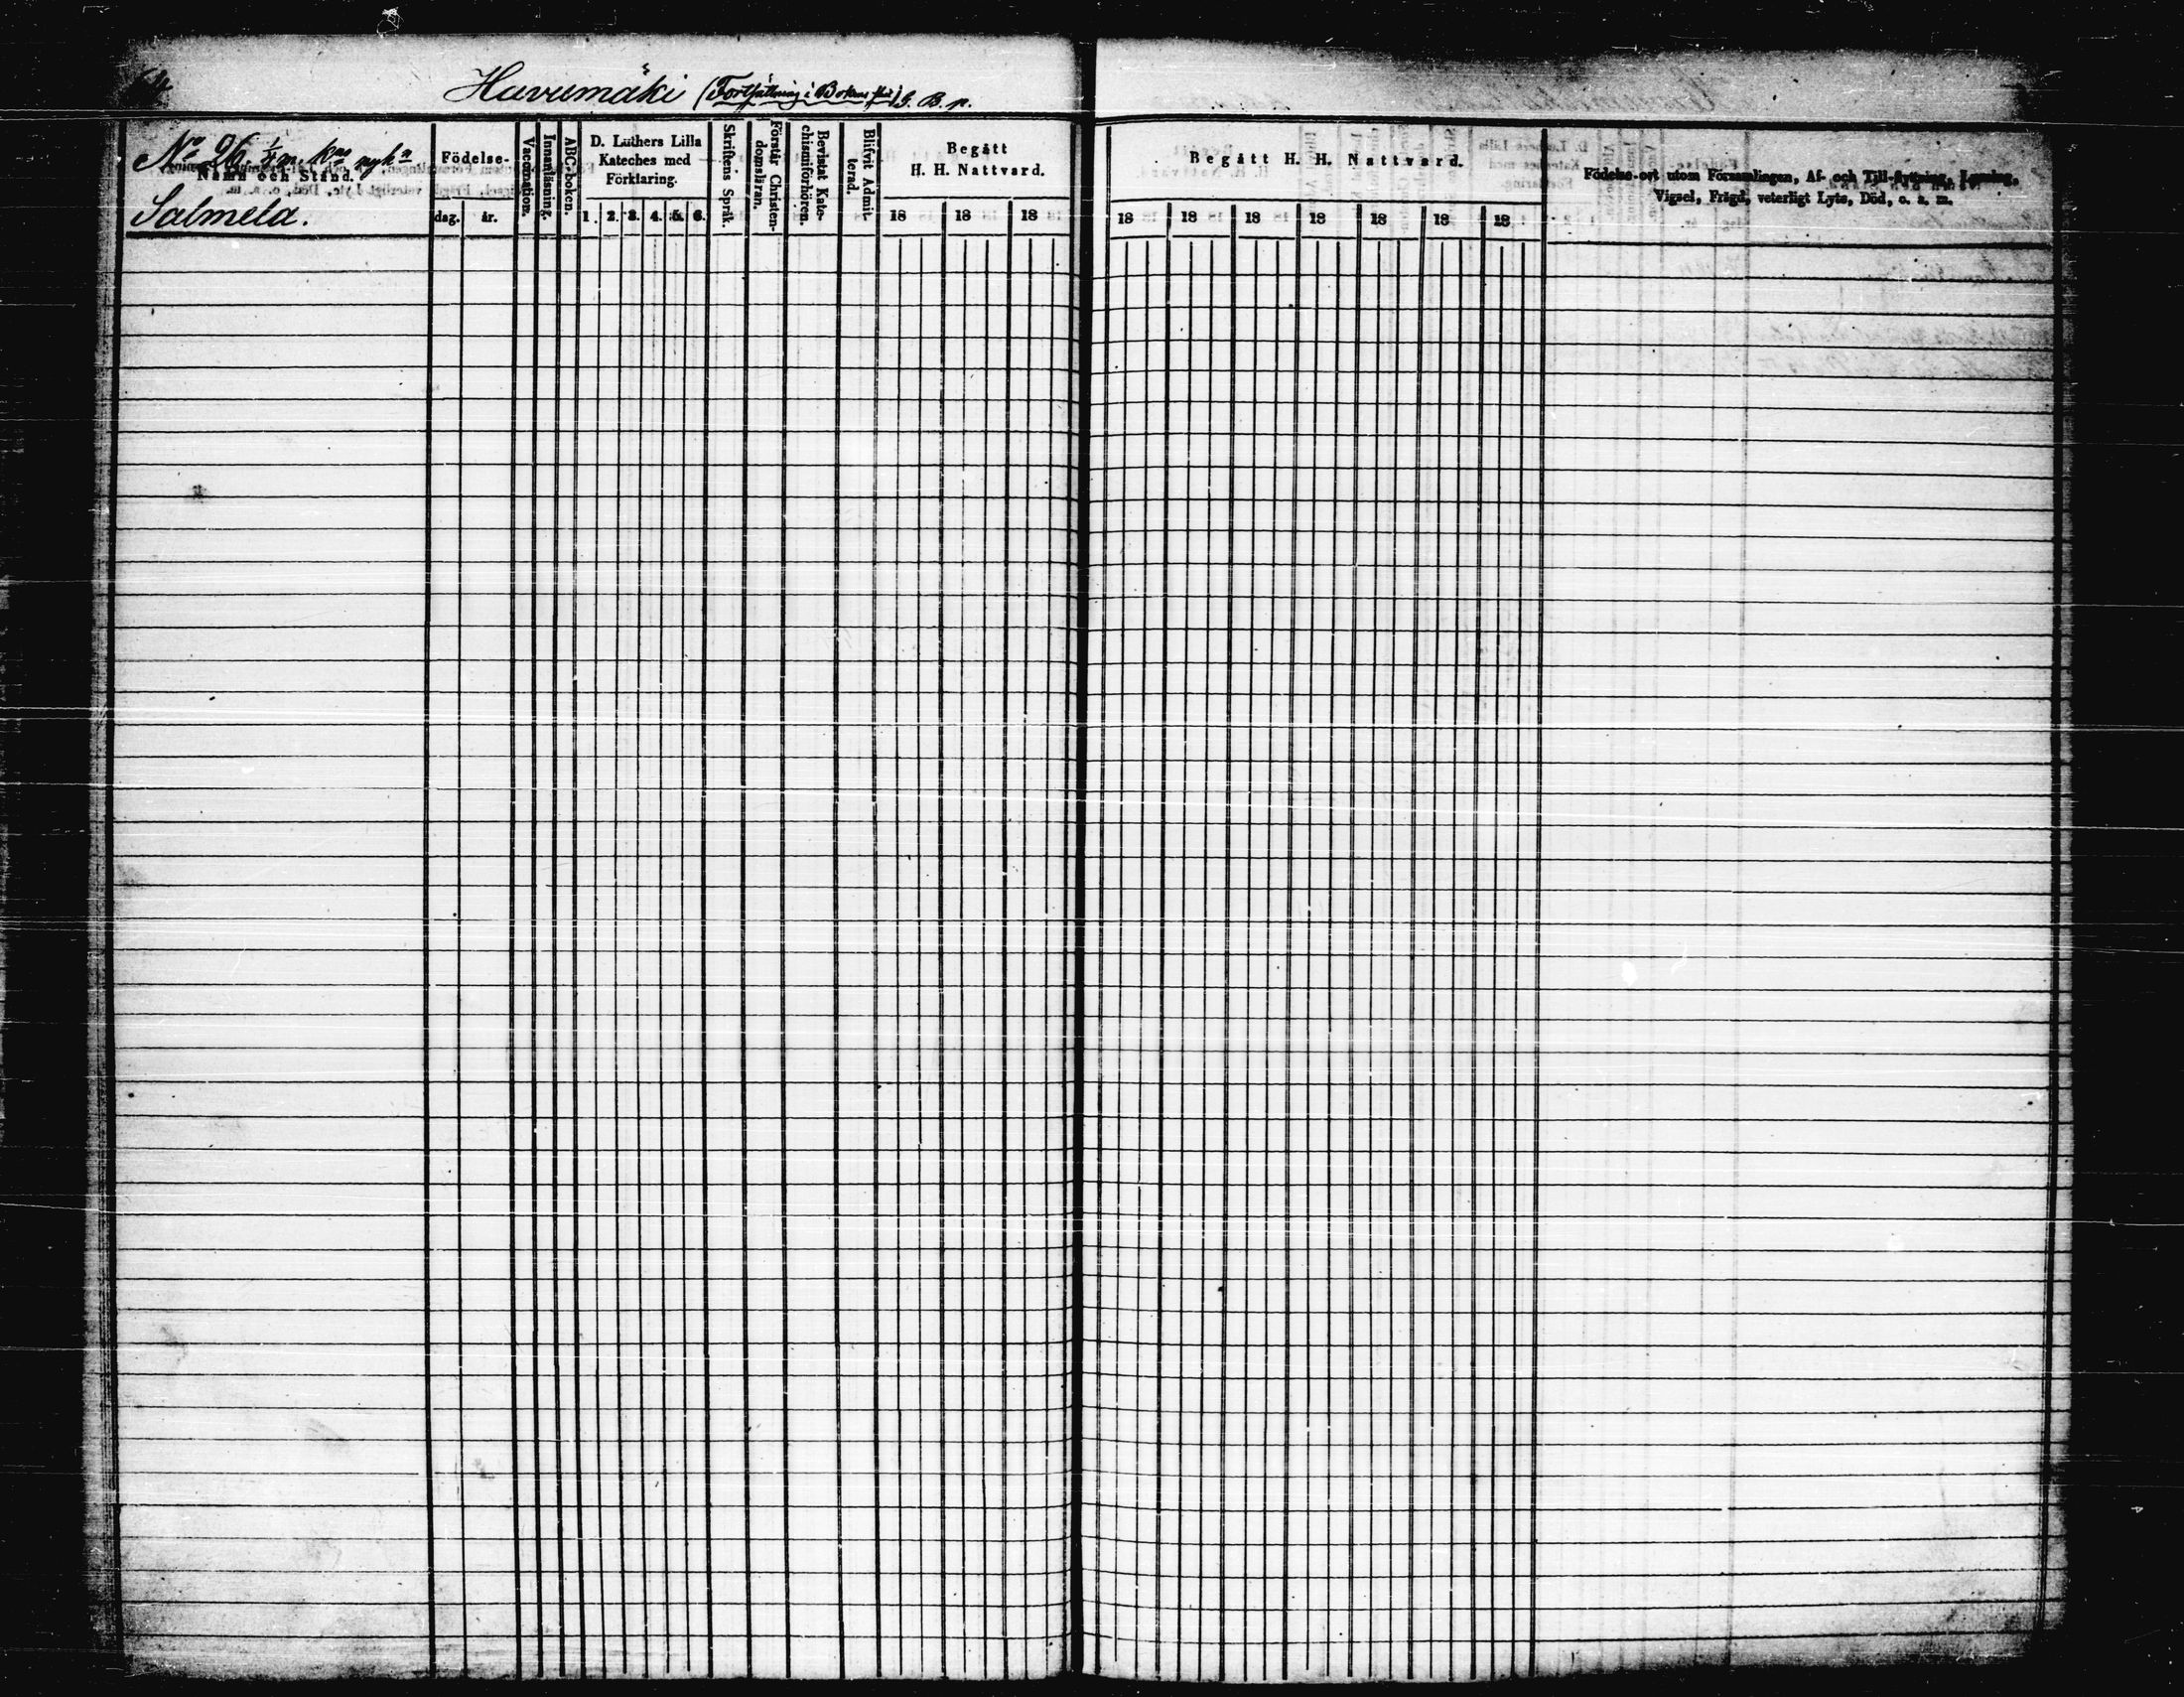 64
Havumäki (Fortsättning i Bokens slut) G. B. p.
No 26. 1/4 m. kno nyhn
Namn och Stånd.
Salmela.
Födelse-
dag. år.
Vaccination.
Innanläsning.
ABC-boken.
D. Luthers Lilla
Kateches med
Förklaring.
1. 2. 3. 4. 5. 6.
Skriftens Språk.
Förstår Christen-
domsläran.
Bevistat Kate-
chismiförhören.
Blifvit Admit-
terad.
Begått
H. H. Nattvard.
18 18 18
Begått H. H. Nattvard.
18 18 18 18 18 18 18
Födelse-ort utom Församlingen, Af- och Till-flyttning, Lysning,
Vigsel, Frägd, veterligt Lyte, Död, o. s. m.